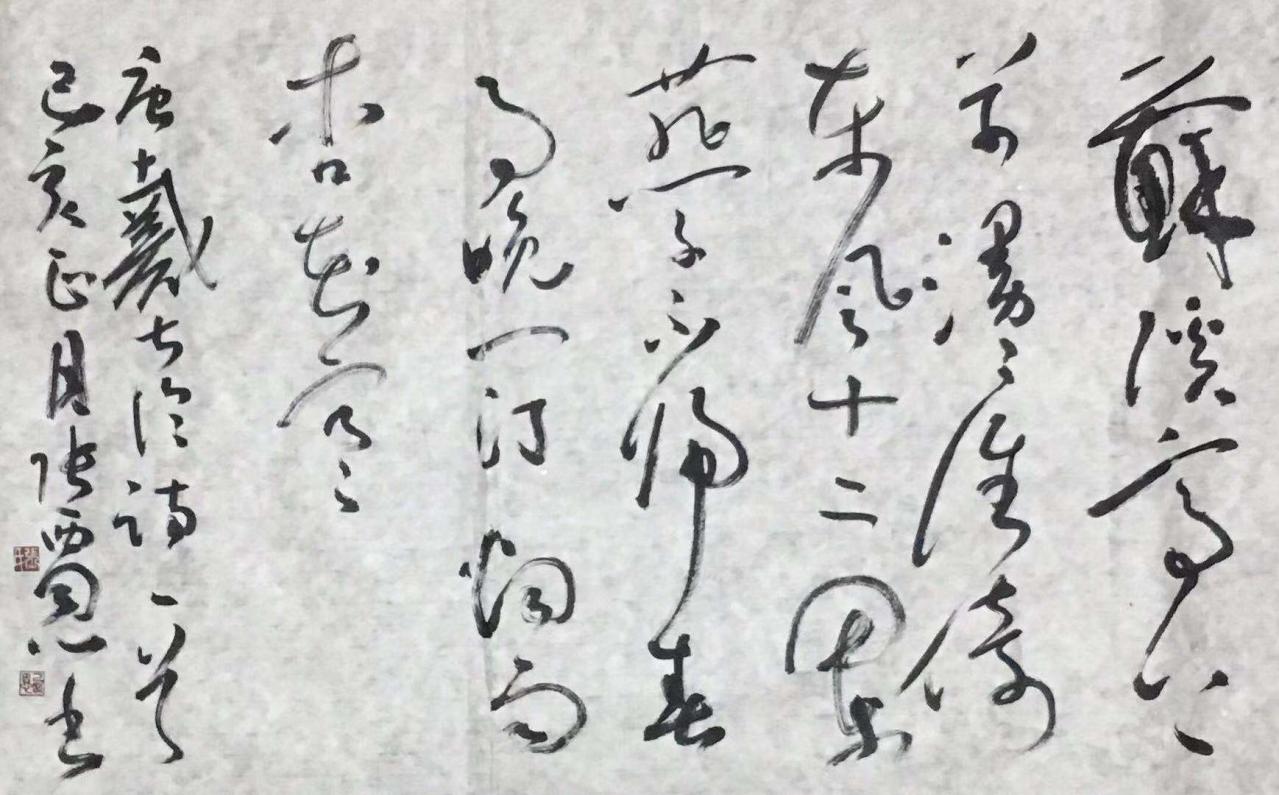 蘇溪亭上
草漫〻誰倚
東風十二闌
燕子不歸春
事晚一汀烟雨
杏花寒
唐戴叔倫詩一首
己亥正月張西恩書